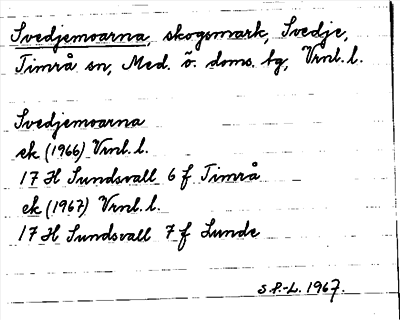 Svedjemoarna, skogsmark, Svedje,
Timrå sn, Med. ö. doms. tg, Vrnl. l.
Svedjemoarna
ek (1966) Vrnl. l.
17 H Sundsvall 6 f Timrå
ek (1967) Vrnl. l.
17 H Sundsvall 7 f Lunde
S P.-L. 1967.